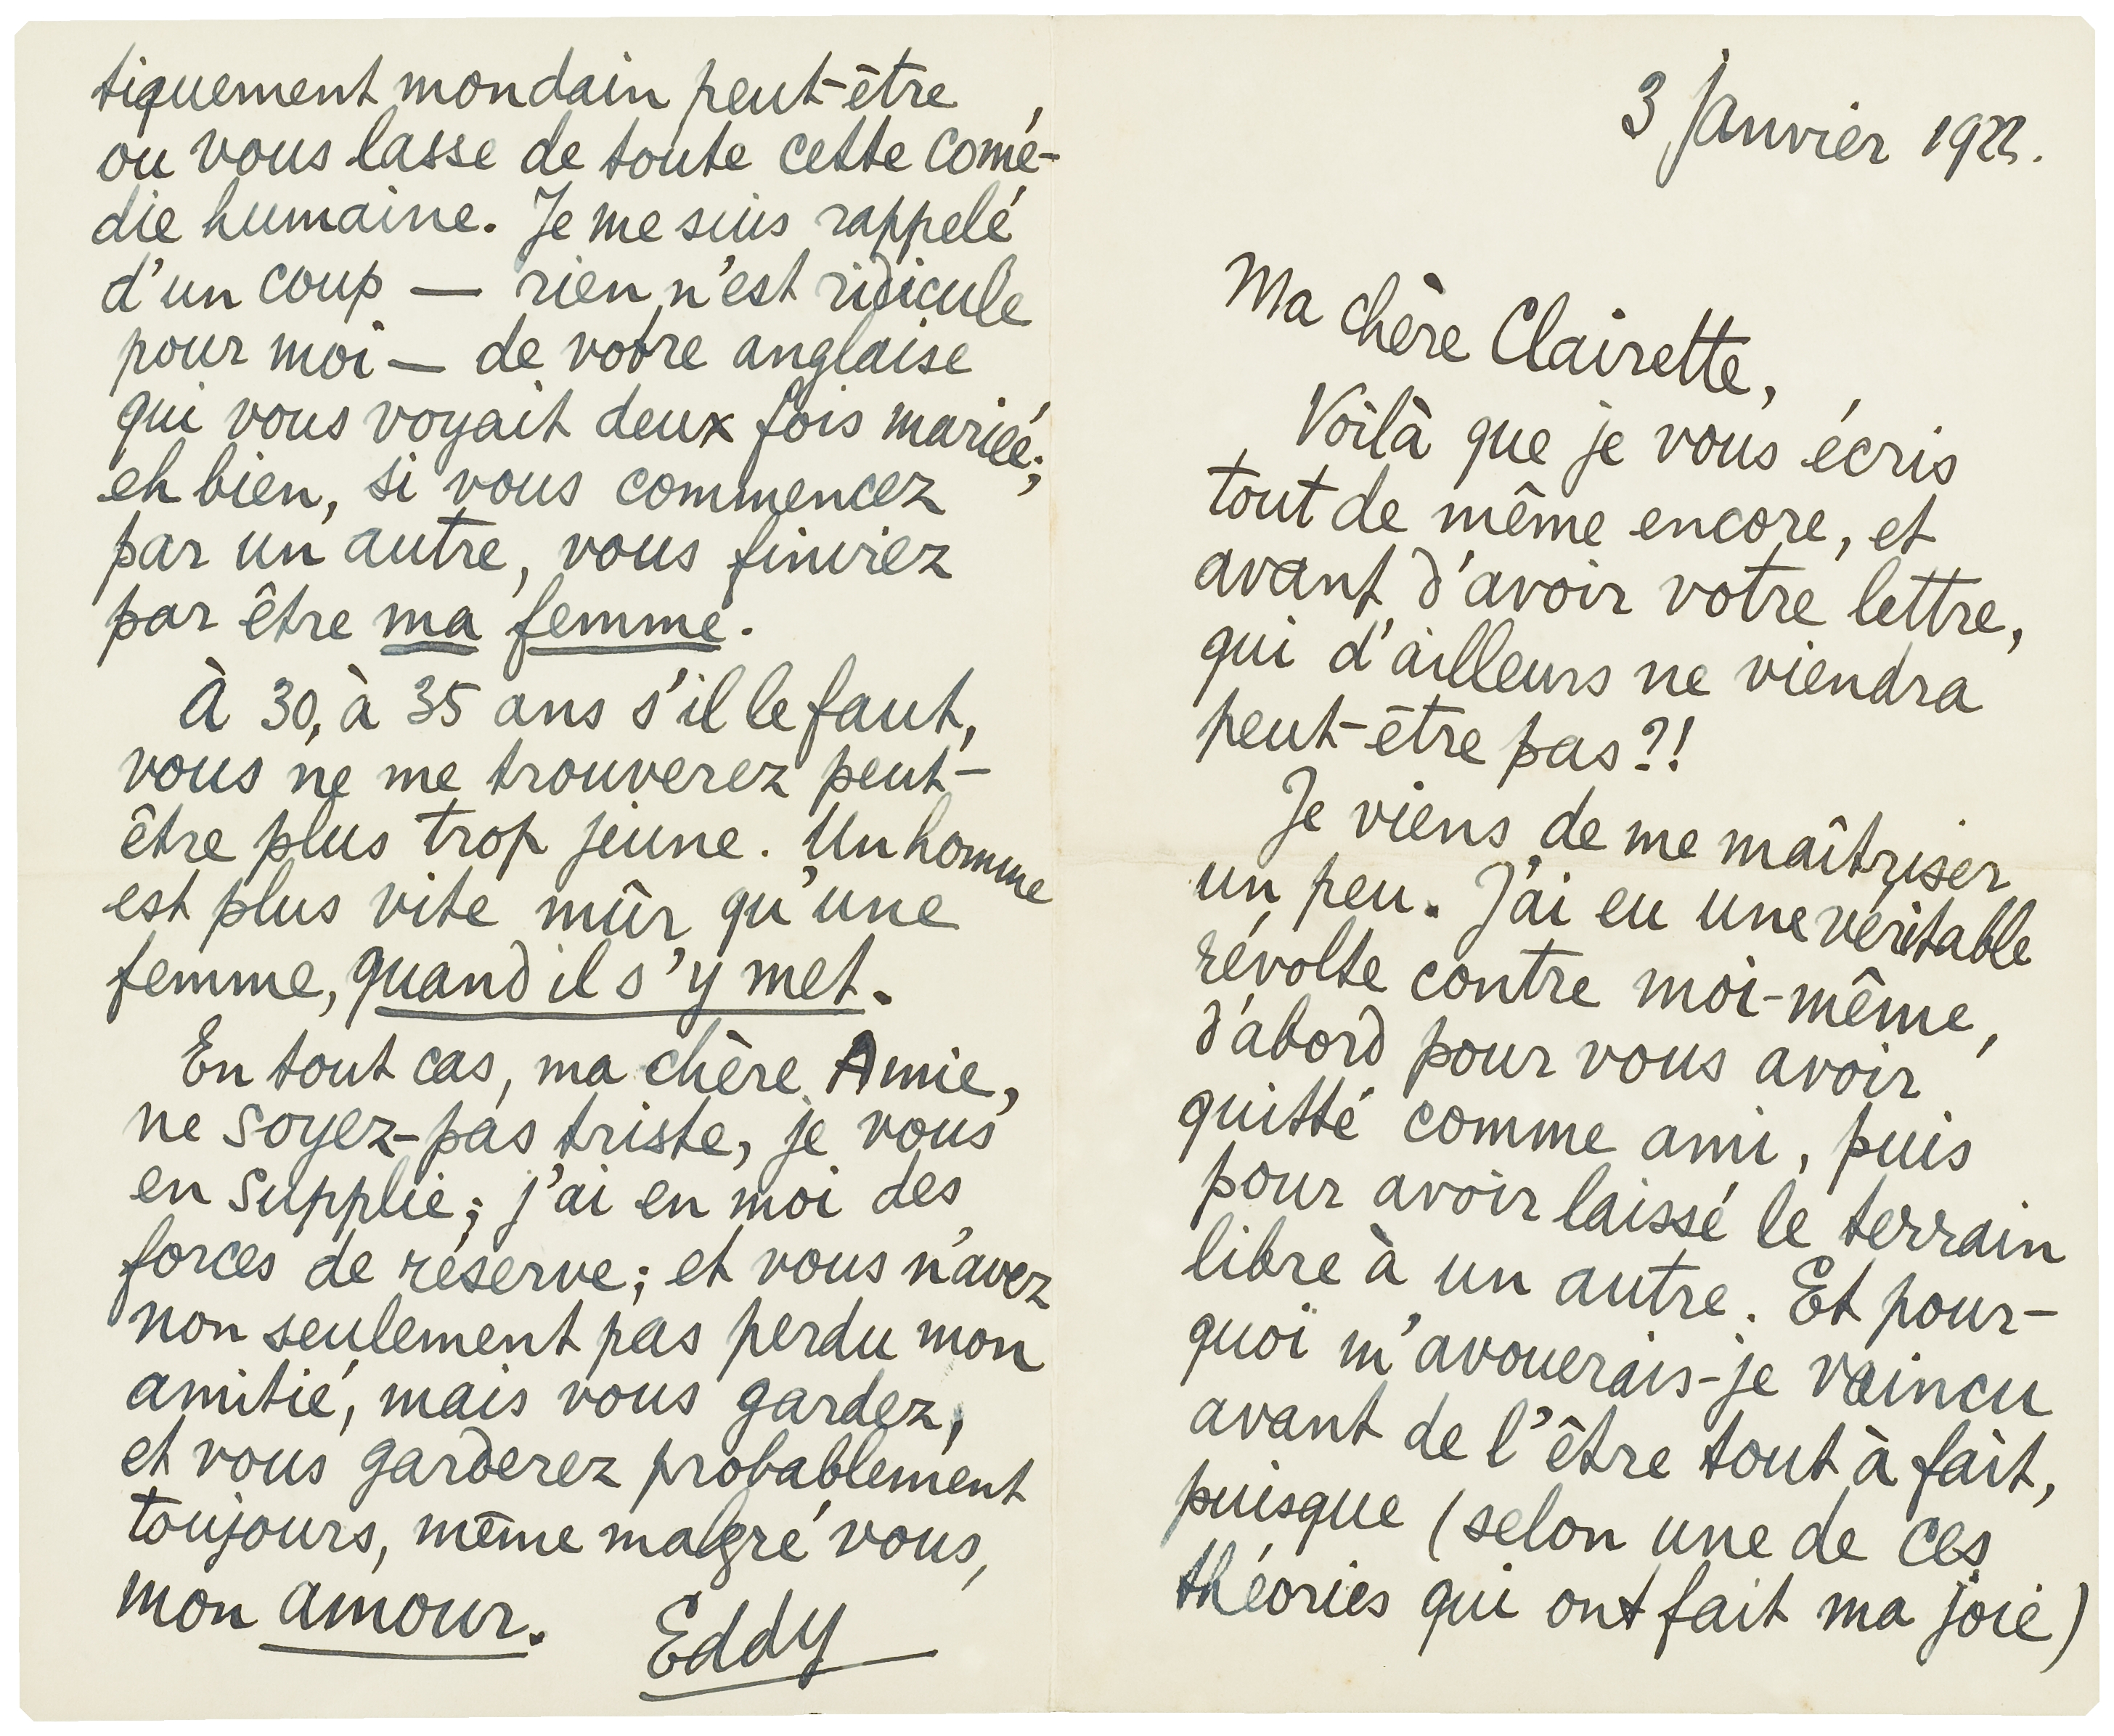 3 Janvier 1922.
Ma chère Clairette,
Voilà que je vous écris
tout de même encore, et
avant d'avoir votre lettre,
qui d'ailleurs ne viendra
peut-être pas?!
Je viens de me maîtriser
un peu. J'ai eu une véritable
révolte contre moi-même,
d'abord pour vous avoir
quitté comme ami, puis
pour avoir laissé le terrain
libre à un autre. Et pour-
quoi m'avouerais-je vaincu
avant de l'être tout à fait,
puisque (selon une de ces
théories qui ont fait ma joie)
tiquement mondain peut-être
ou vous lasse de toute cette comé-
die humaine. Je me suis rappelé
d'un coup — rien n'est ridicule
pour moi — de votre anglaise
qui vous voyait deux fois mariée;
eh bien, si vous commencez
par un autre, vous finiriez
par être ma femme.
À 30, à 35 ans s'il le faut,
vous ne me trouverez peut-
être plus trop jeune. Un homme
est plus vite mûr qu'une
femme, quand il s'y met.
En tout cas, ma chère Amie,
ne soyez-pas triste, je vous
en supplie; j'ai en moi des
forces de réserve; et vous n'avez
non seulement pas perdu mon
amitié, mais vous gardez,
et vous garderez probablement
toujours, même malgré vous,
mon amour. Eddy